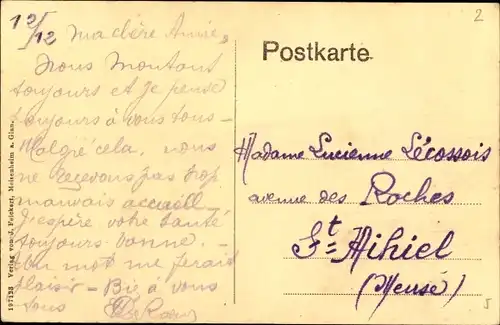 12/12
ma chère Amie,
Nous montons
toujours et je pense
toujours à vous tous -
Malgré cela, nous
ne recevons pas trop
mauvais accueil -
J'espère votre santé
toujours bonne. -
Un mot me ferait
plaisir - Bie à vous
tous
2
Postkarte
Madame Lucienne Lécossois
avenue des Roches
St = Mihiel
(Meuse)
127123 Verlag von J. Feickert, Meisenheim a. Glan.